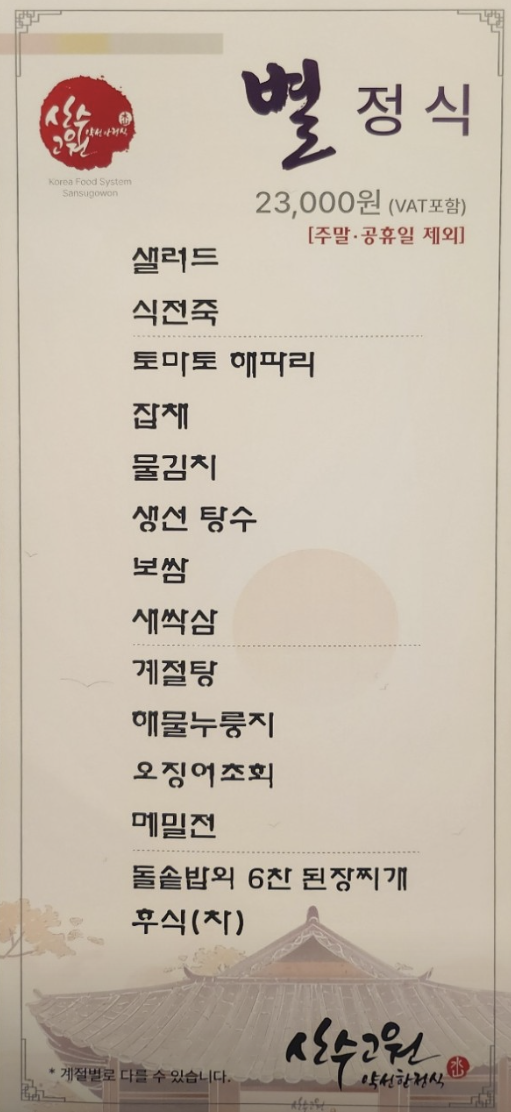 산수
고원
약선한정식
Korea Food System
Sansugowon
별 정식
23,000원 (VAT포함)
[주말·공휴일 제외]
샐러드
식전죽
토마토 해파리
잡채
물김치
생선 탕수
보쌈
새싹삼
계절탕
해물누룽지
오징어초회
메밀전
돌솥밥외 6찬 된장찌개
후식(차)
산수고원
약선한정식
* 계절별로 다를 수 있습니다.
산수고원